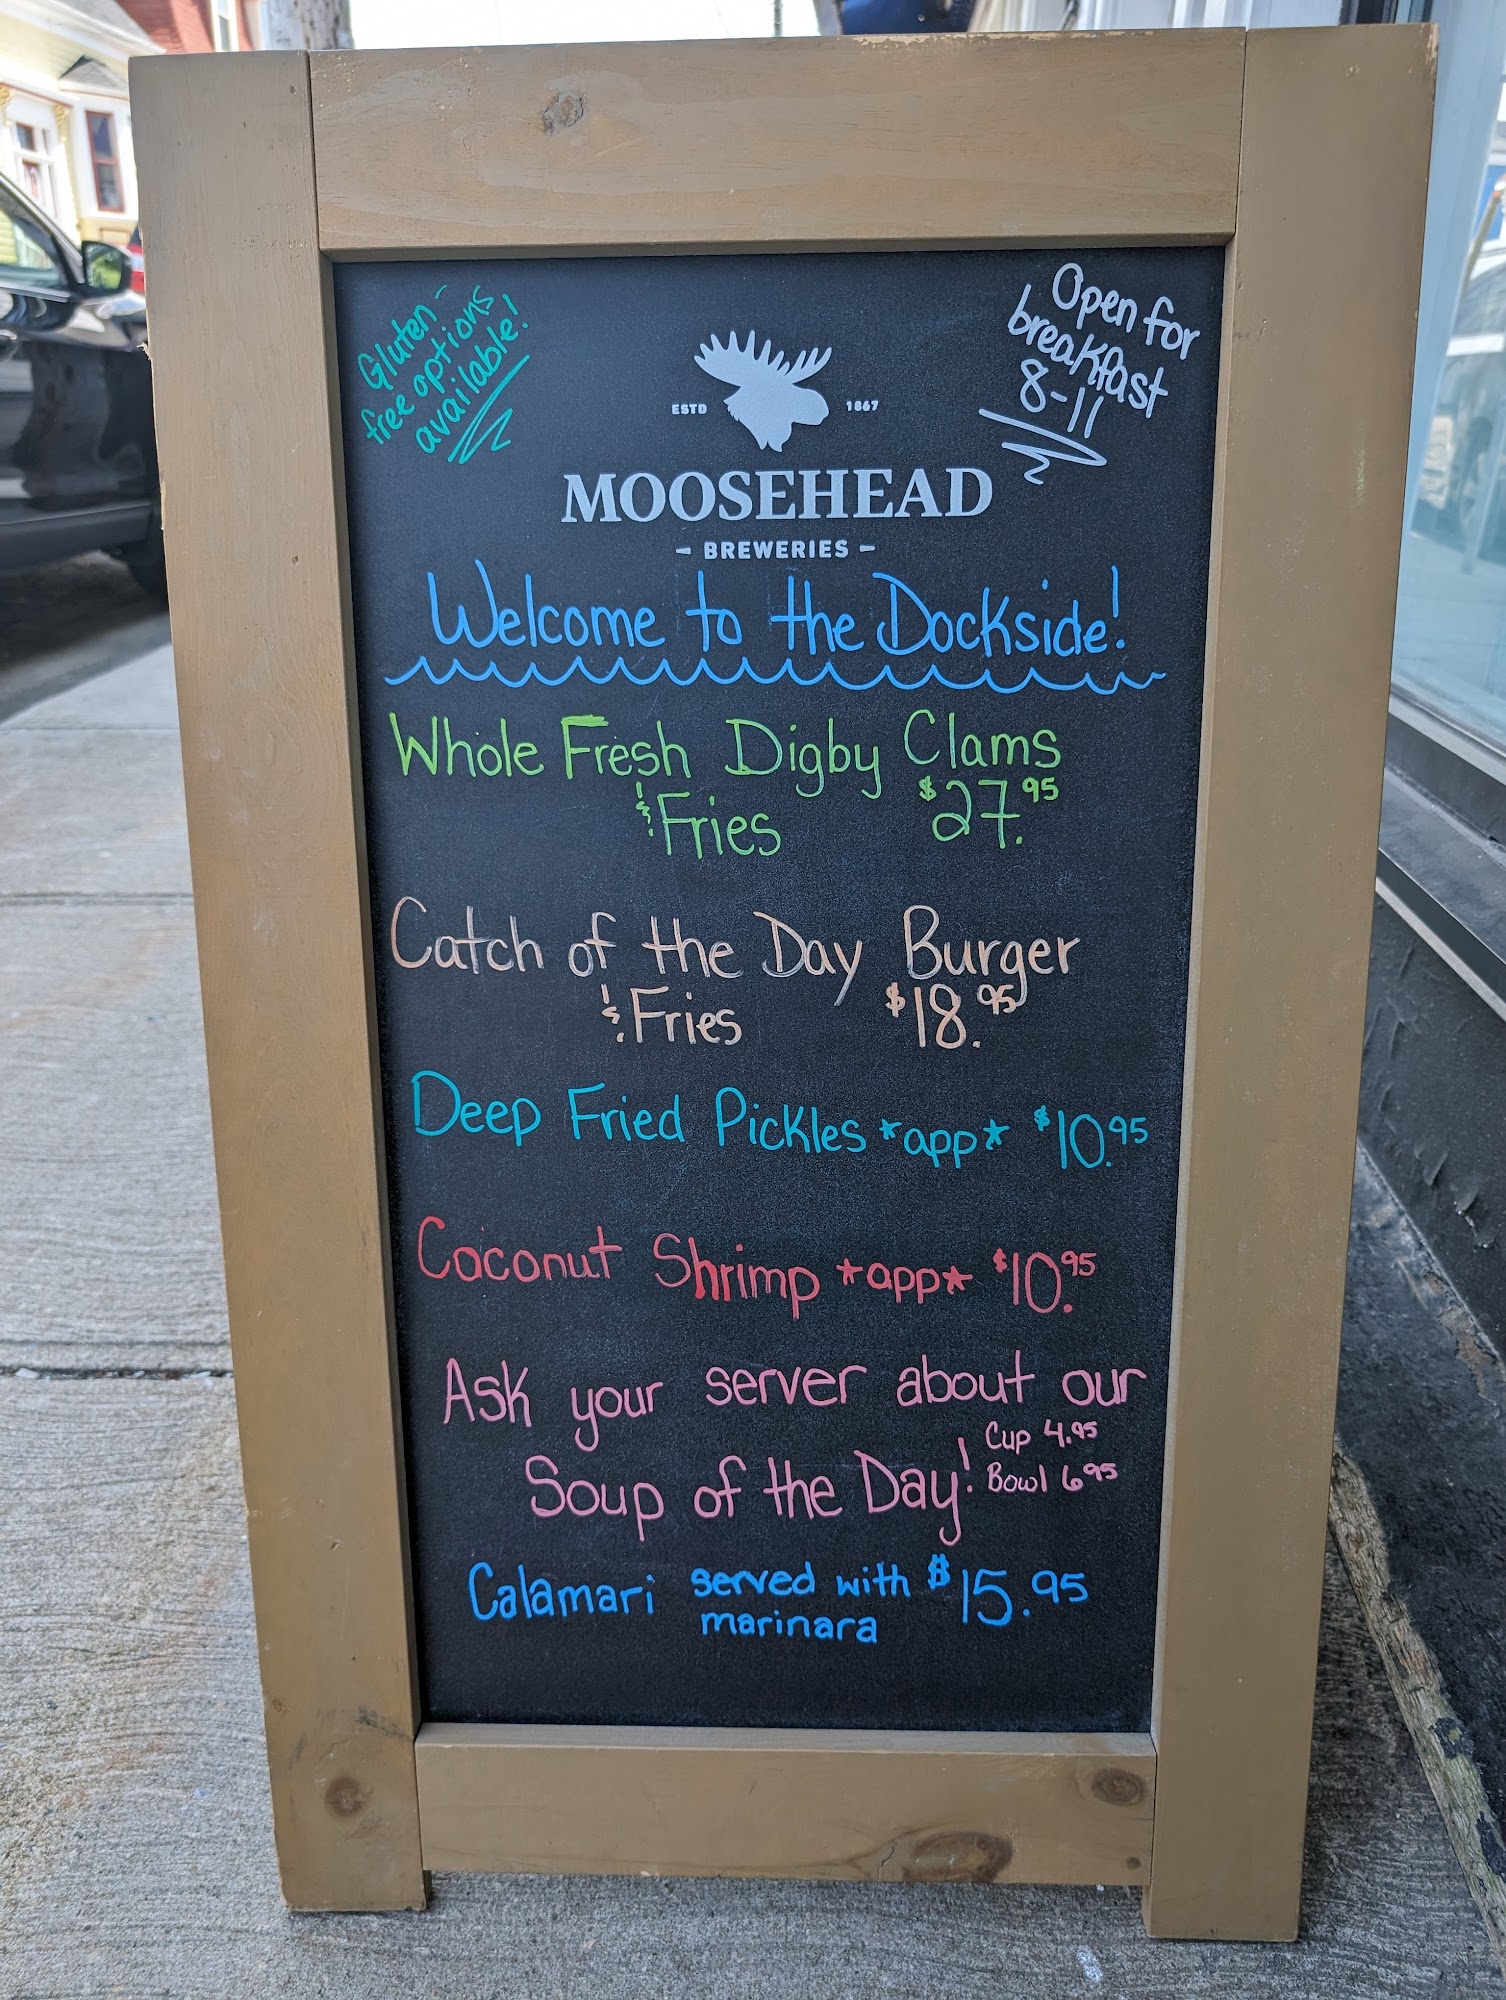 Gluten-
free options
available!
Open for
breakfast
8-11
ESTD 1867
MOOSEHEAD
- BREWERIES -
Welcome to the Dockside!
Whole Fresh Digby Clams
& Fries $27.95
Catch of the Day Burger
& Fries $18.95
Deep Fried Pickles *app* $10.95
Coconut Shrimp *app* $10.95
Ask your server about our
Soup of the Day! Cup 4.95
Bowl 6.95
Calamari served with $15.95
marinara